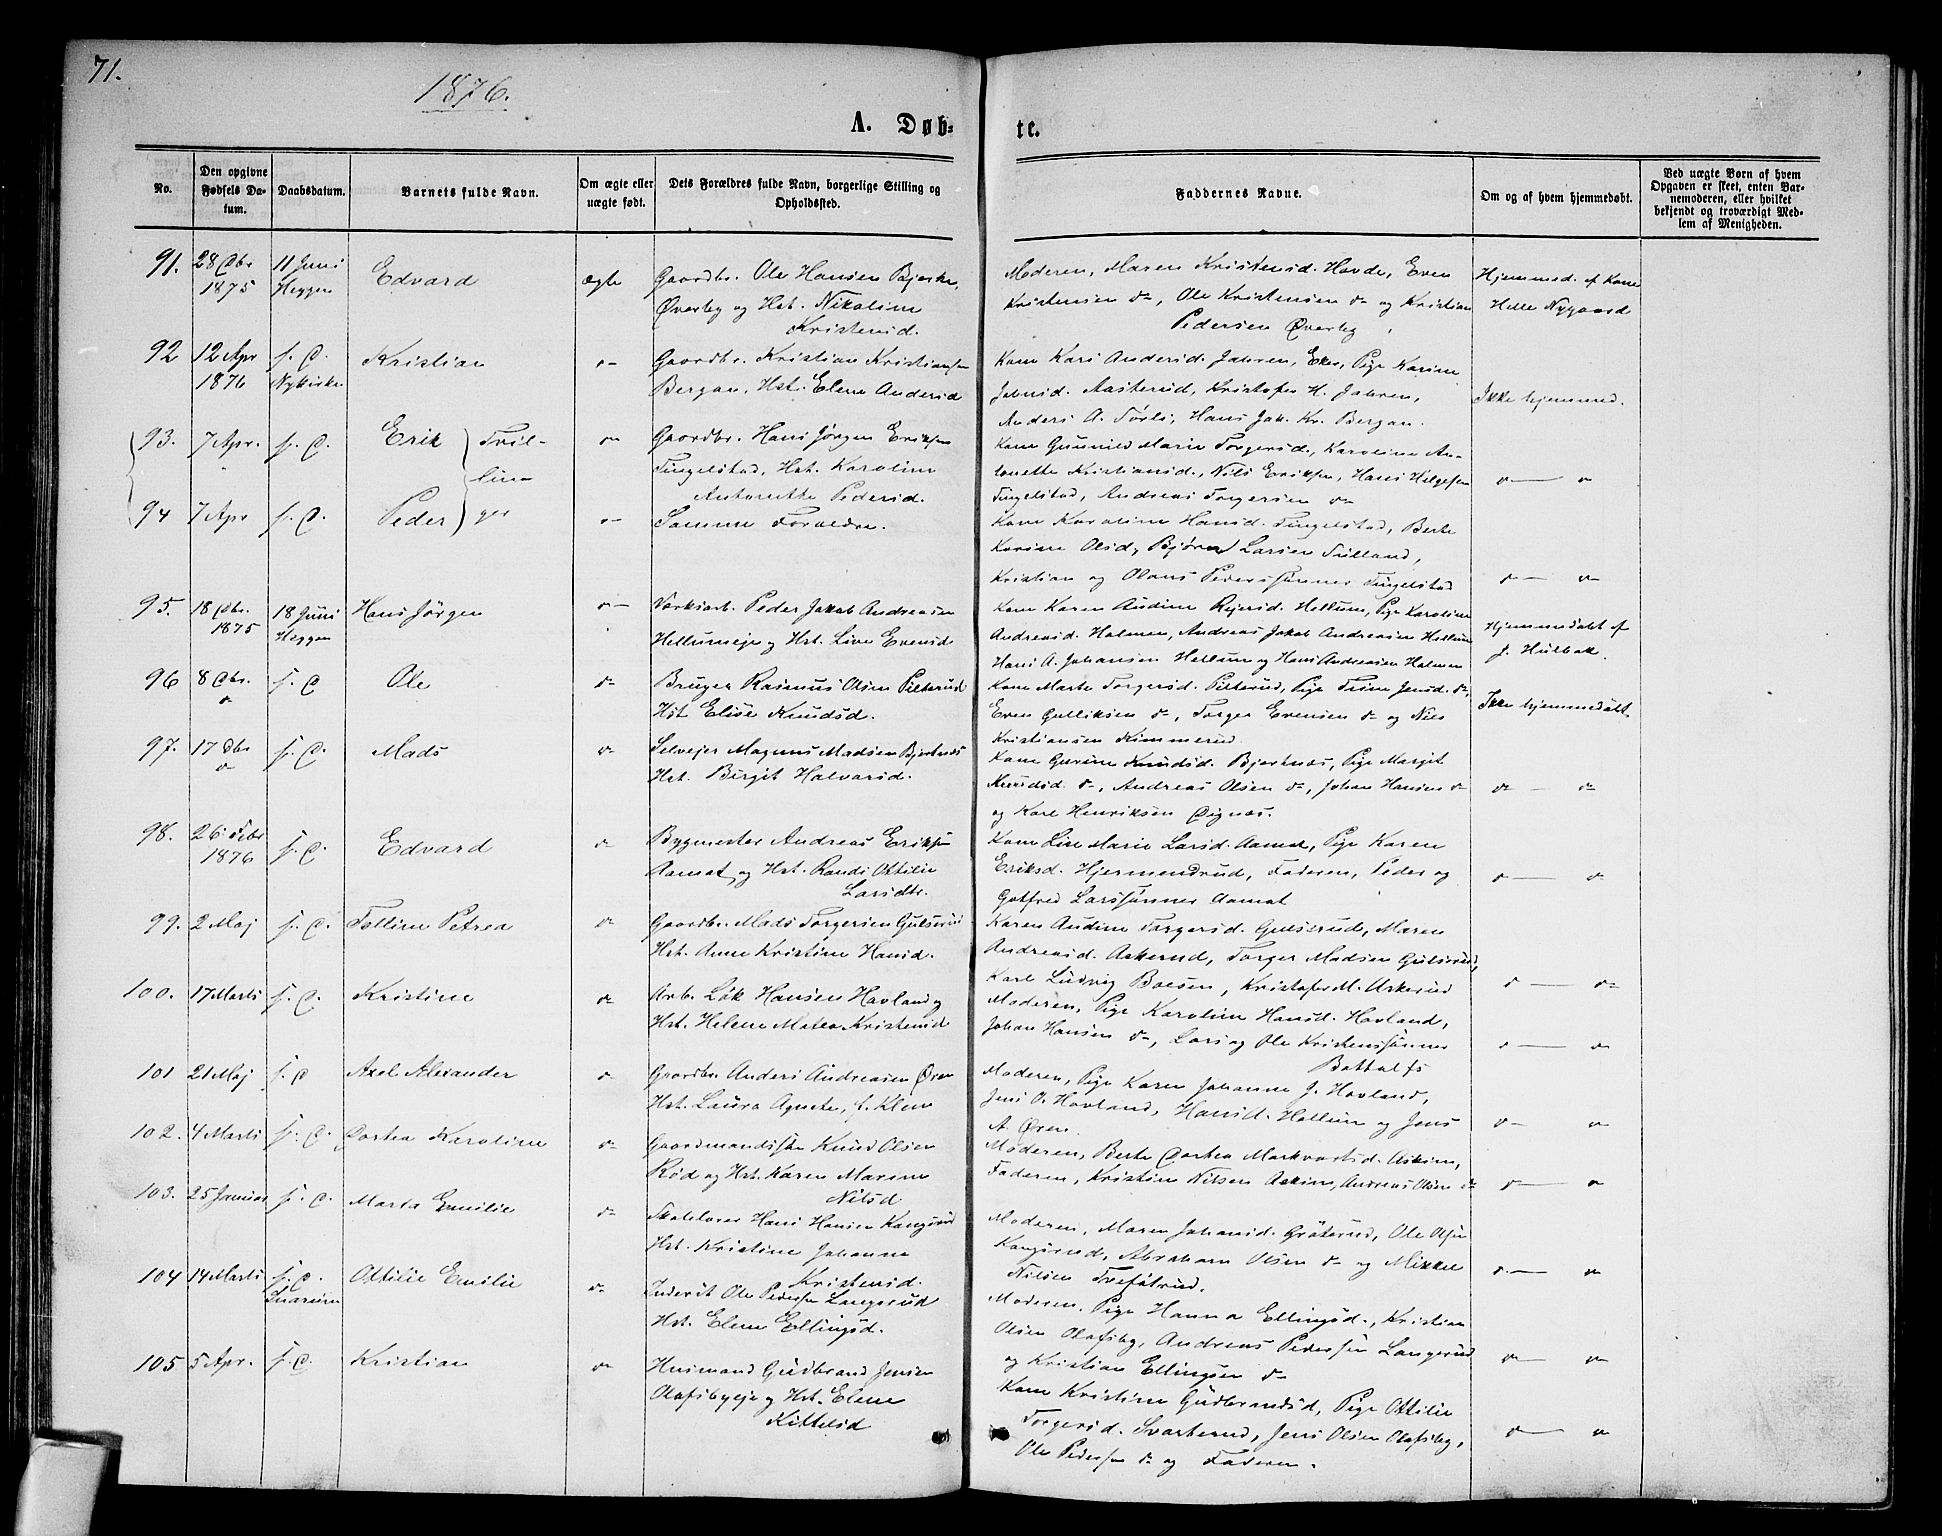 71.
1876.
A. Døb-
te.
No.
Den opgivne Fødsels Da-
tum.
Daabsdatum.
Barnets fulde Navn.
Om ægte eller
uægte født.
Dets Forældres fulde Navn, borgerlige Stilling og
Opholdssted.
Faddernes Navne.
Om og af hvem hjemmedøbt.
Ved uægte Børn af hvem
Opgaven er skeet, enten Bar-
nemoderen, eller hvilket
bekjendt og troværdigt Med-
lem af Menigheden.
91. 28 Dbr 1875 11 Juni Heggen Edvard ægte
Gaardbr. Ole Hansen Bjerke,
Øverby og Hst. Nikoline
Kristensd.
Moderen, Maren Kristensd. Hovde, Even
Kristensen do, Ole Kristensen do og Kristian
Pedersen Øverby
Hjemmed. af Kone
Helle Nygaard
92 12 Apr 1876 s. D. Nykirke Kristian do
Gaardbr. Kristian Kristiansen
Bergan, Hst. Elene Andersd
Kone Kari Andersd. Jahren, Eker, Pige Karine
Jahnsd. Aasterud, Kristofer H. Jahren,
Anders A. Tørli, Hans Jak. Kr. Bergan.
Ikke hjemmed.
93. 7 Apr. s. D. Erik Tvil-
lin- do
Gaardbr. Hans Jørgen Eriksen
Tingelstad, Hst. Karoline
Antonette Pedersd.
Kone Gunnild Marie Torgersd., Karoline An-
tonette Kristiansd., Nils Eriksen, Hans Helgesen
Tingelstad, Andreas Torgersen do
do do
94 7 Apr s. D. Peder ger do
Samme Forældre.
Kone Karoline Hansd. Tingelstad, Berte
Karine Olsd, Bjørn Larsen Tulland,
Kristian og Olaus Pederssønner Tingelstad
do do
95. 18 Dbr. 1875 18 Juni Heggen Hans Jørgen do
Værksarb. Peder Jakob Andreasen
Hellumeje og Hst. Live Evensd
Kone Karen Audine Rejersd. Hellum, Pige Karoline
Andreasd. Holmen, Andreas Jakob Andreasen Hellum
Hans A. Johansen Hellum og Hans Andreasen Holmen
Hjemmedøbt af
J. Hurbak.
96 8 Dbr. do s. D Ole do
Bruger Rasmus Olsen Pilterud
Hst Elise Knudsd.
Kone Marte Torgersd. Pilterud, Pige Trine Jensd. do,
Even Gulliksen do, Torger Evensen do og Nils
Kristiansen Kimmerud.
Ikke hjemmedøbt
97. 17 Dbr do s. D. Mads do
Selvejer Magnus Madsen Bjertnæs
Hst. Birgit Halvorsd.
Kone Gurine Knudsd. Bjertnæs, Pige Margit
Knudsd. do, Andreas Olsen do, Johan Hansen do
og Karl Henriksen Rignæs.
do do
98. 26 Febr 1876 s. D. Edvard do
Bygmester Andreas Eriksen
Aamot og Hst. Randi Ottilie
Larsdtr.
Kone Lise Marie Larsd. Aamot, Pige Karen
Eriksd. Hjermendrud, Faderen, Peder og
Gotfred Larssønner Aamot
do do
99. 2 Maj s. D. Tolline Petrea do
Gaardbr. Mads Torgersen Gulsrud
Hst. Anne Kristine Hansd.
Karen Audine Torgersd. Gulsrud, Maren
Andreasd. Askerud, Torger Madsen Gulsrud,
Karl Ludvig Boesen, Kristofer M. Askerud
do do
100. 17 Marts s. D. Kristine do
Arb. Løk Hansen Hovland og
Hst. Helene Matea Kristensd
Moderen, Pige Karoline Hansd. Hovland,
Johan Hansen do, Lars og Ole Kristenssønner
Bottolfs
do do
101 21 Maj s. D Axel Alexander do
Gaardbr. Anders Andreasen Øren
Hst. Laura Agnete, f. Klem
Moderen, Pige Karen Johanne J. Hovland,
Jens O. Hovland, Hansd. Hellum og Jens
A. Øren.
do do
102. 4 Marts s. D. Dortea Karoline do
Gaardmandssøn Knud Olsen
Rød og Hst. Karen Marine
Nilsd
Moderen, Berte Dortea Markvartsd. Askim,
Faderen, Kristian Nilsen Askim, Andreas Olsen do
do do
103. 25 Januar s. D. Marta Emilie do
Skolelærer Hans Hansen Kongsrud
Hst. Kristine Johanne
Kristensd.
Moderen, Maren Johansd. Gröterud, Ole Olsen
Kongsrud, Abraham Olsen do og Mikkel
Nilsen Trefåtrud.
do do
104 14 Marts s. D. Snarum Ottilie Emilie do
Inderst Ole Pedersen Langerud
Hst. Elene Ellingsd.
Moderen, Pige Hanna Ellingsd., Kristian
Olsen Olafsby, Andreas Pedersen Langerud
og Kristian Ellingsen do
do do
105 5 Apr. s. D. Kristian do
Husmand Gudbrand Jensen
Olafsbyeje og Hst. Elene
Kittelsd
Kone Kristine Gudbrandsd, Pige Ottilie
Torgersd. Svarterud, Jens Olsen Olafsby,
Ole Pedersen do og Faderen.
do do